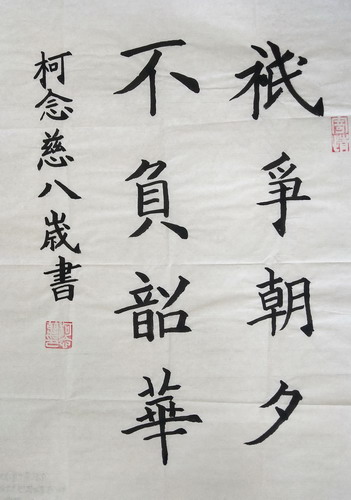 祇爭朝夕
不負韶華
柯念慈八歲書